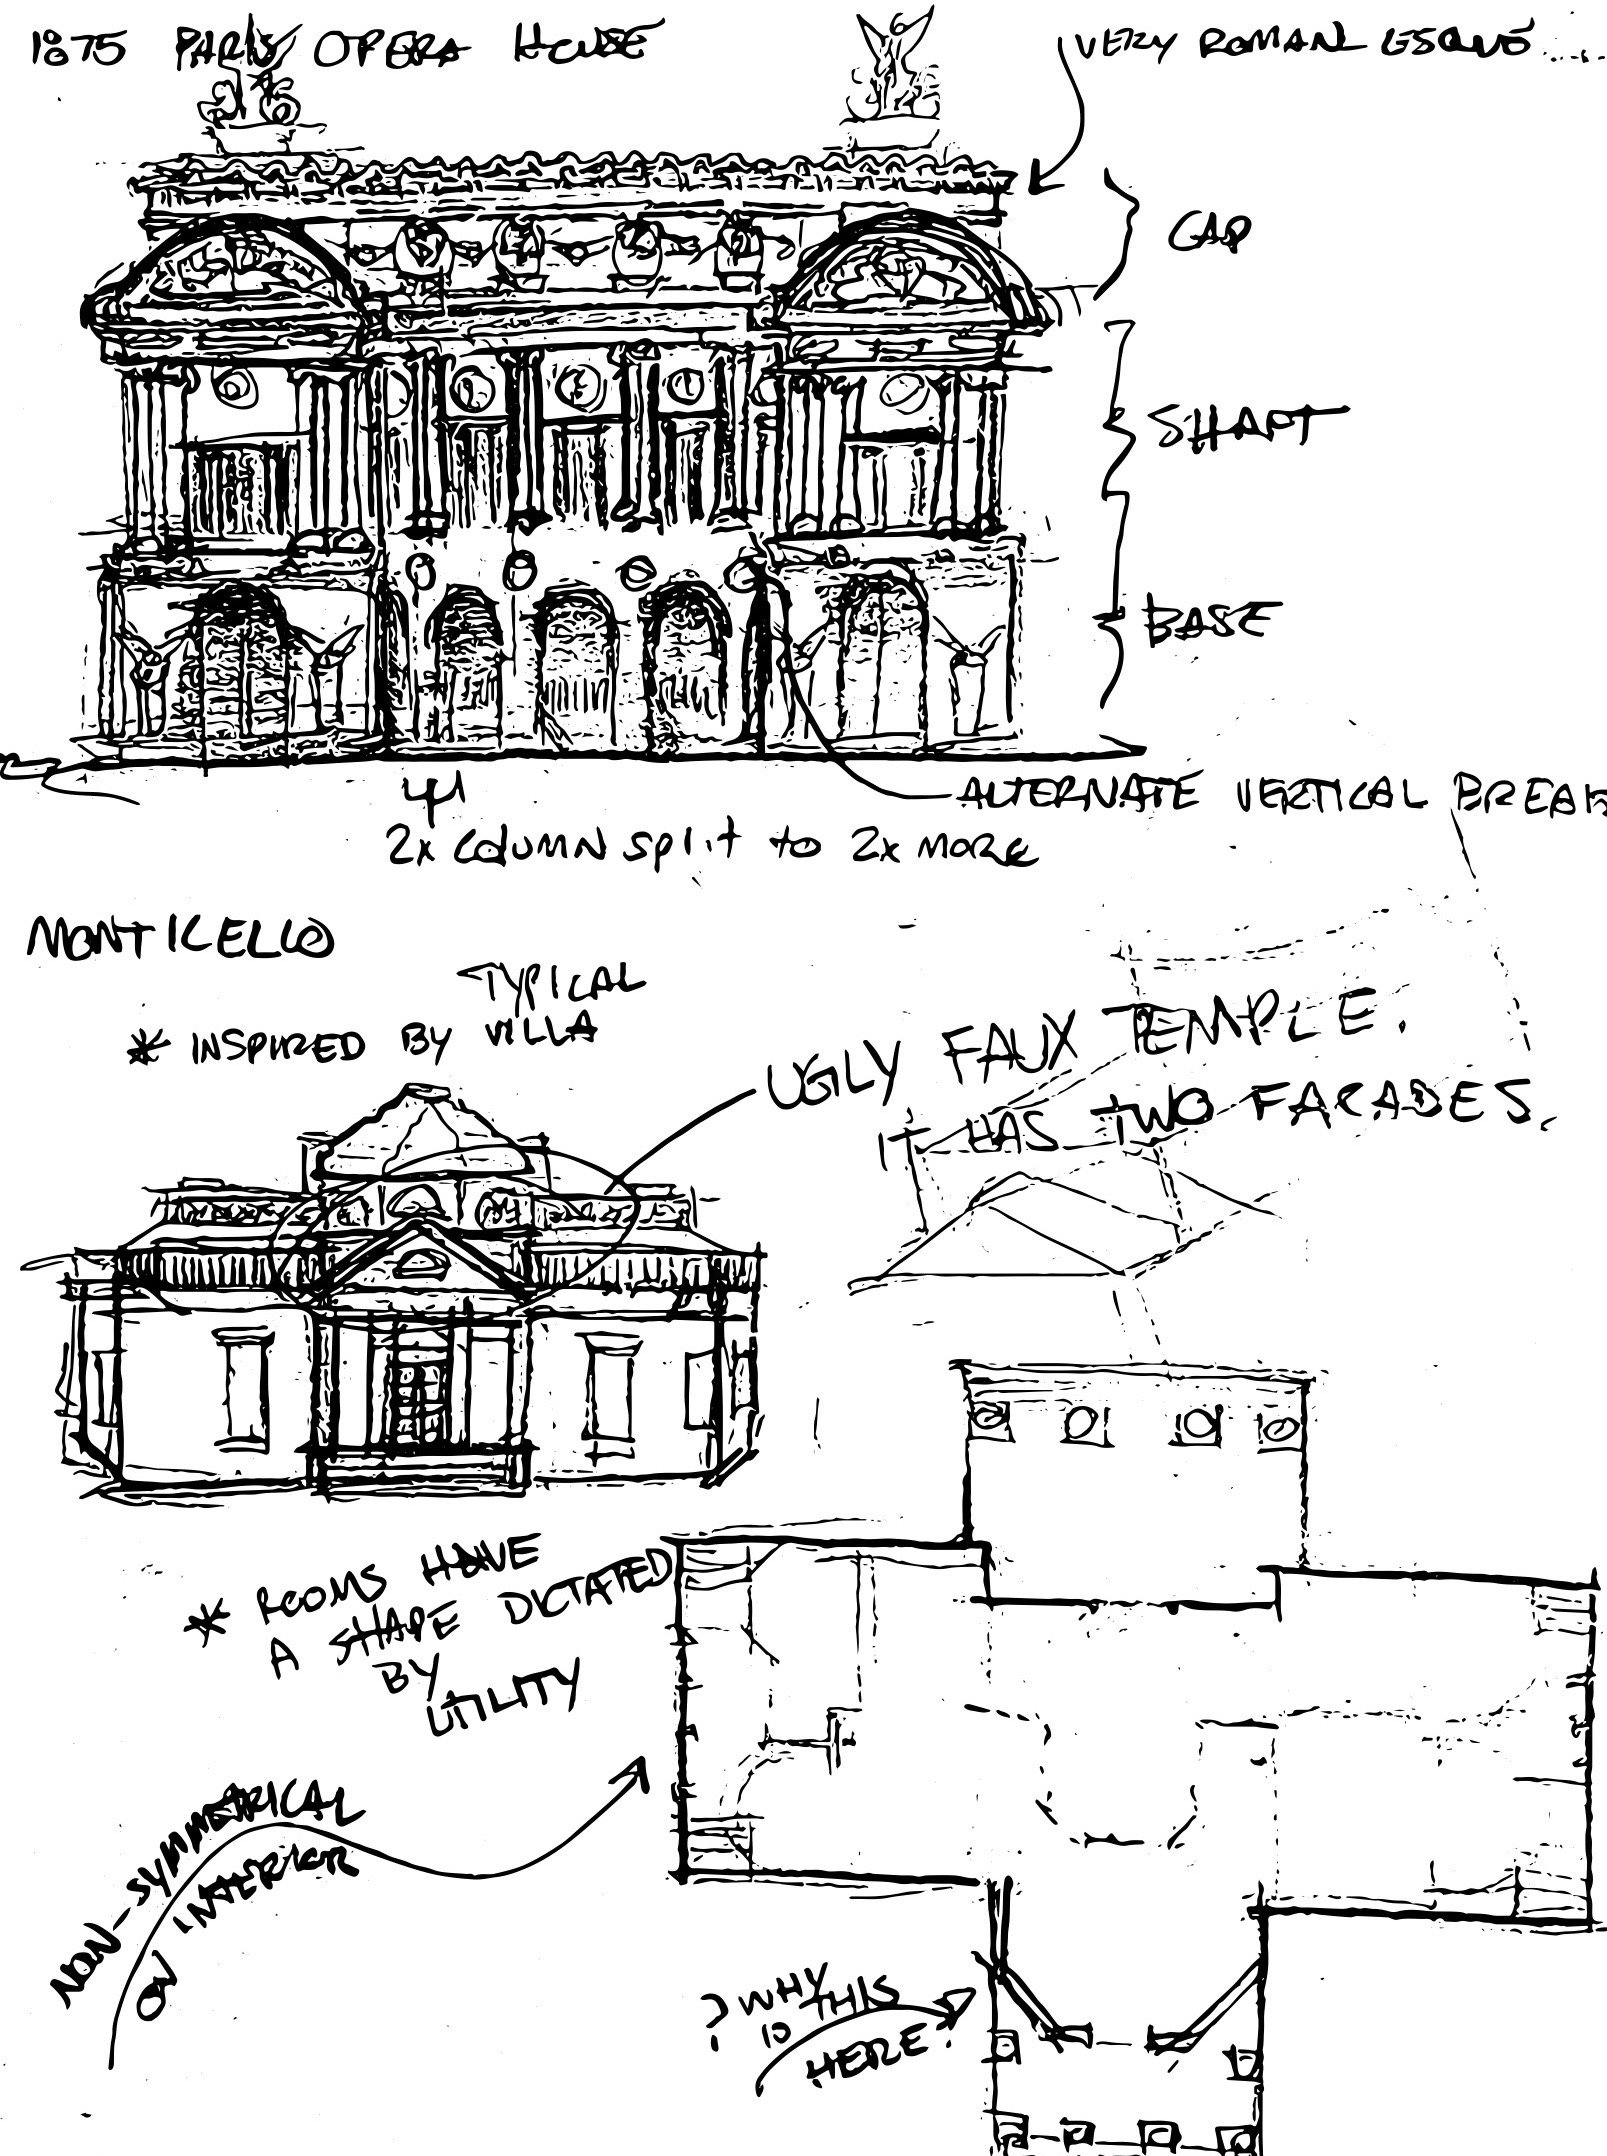 1875 PARIS OPERA HOUSE
VERY ROMANESQUE.....
CAP
SHAFT
BASE
ALTERNATE VERTICAL BREAK
2x COLUMN split to 2x MORE
MONTICELLO
* INSPIRED BY TYPICAL
VILLA
UGLY FAUX TEMPLE.
IT HAS TWO FACADES.
* ROOMS HAVE
A SHAPE DICTATED
BY
UTILITY
NON-SYMMETRICAL
ON INTERIOR
? WHY
IS THIS
HERE?